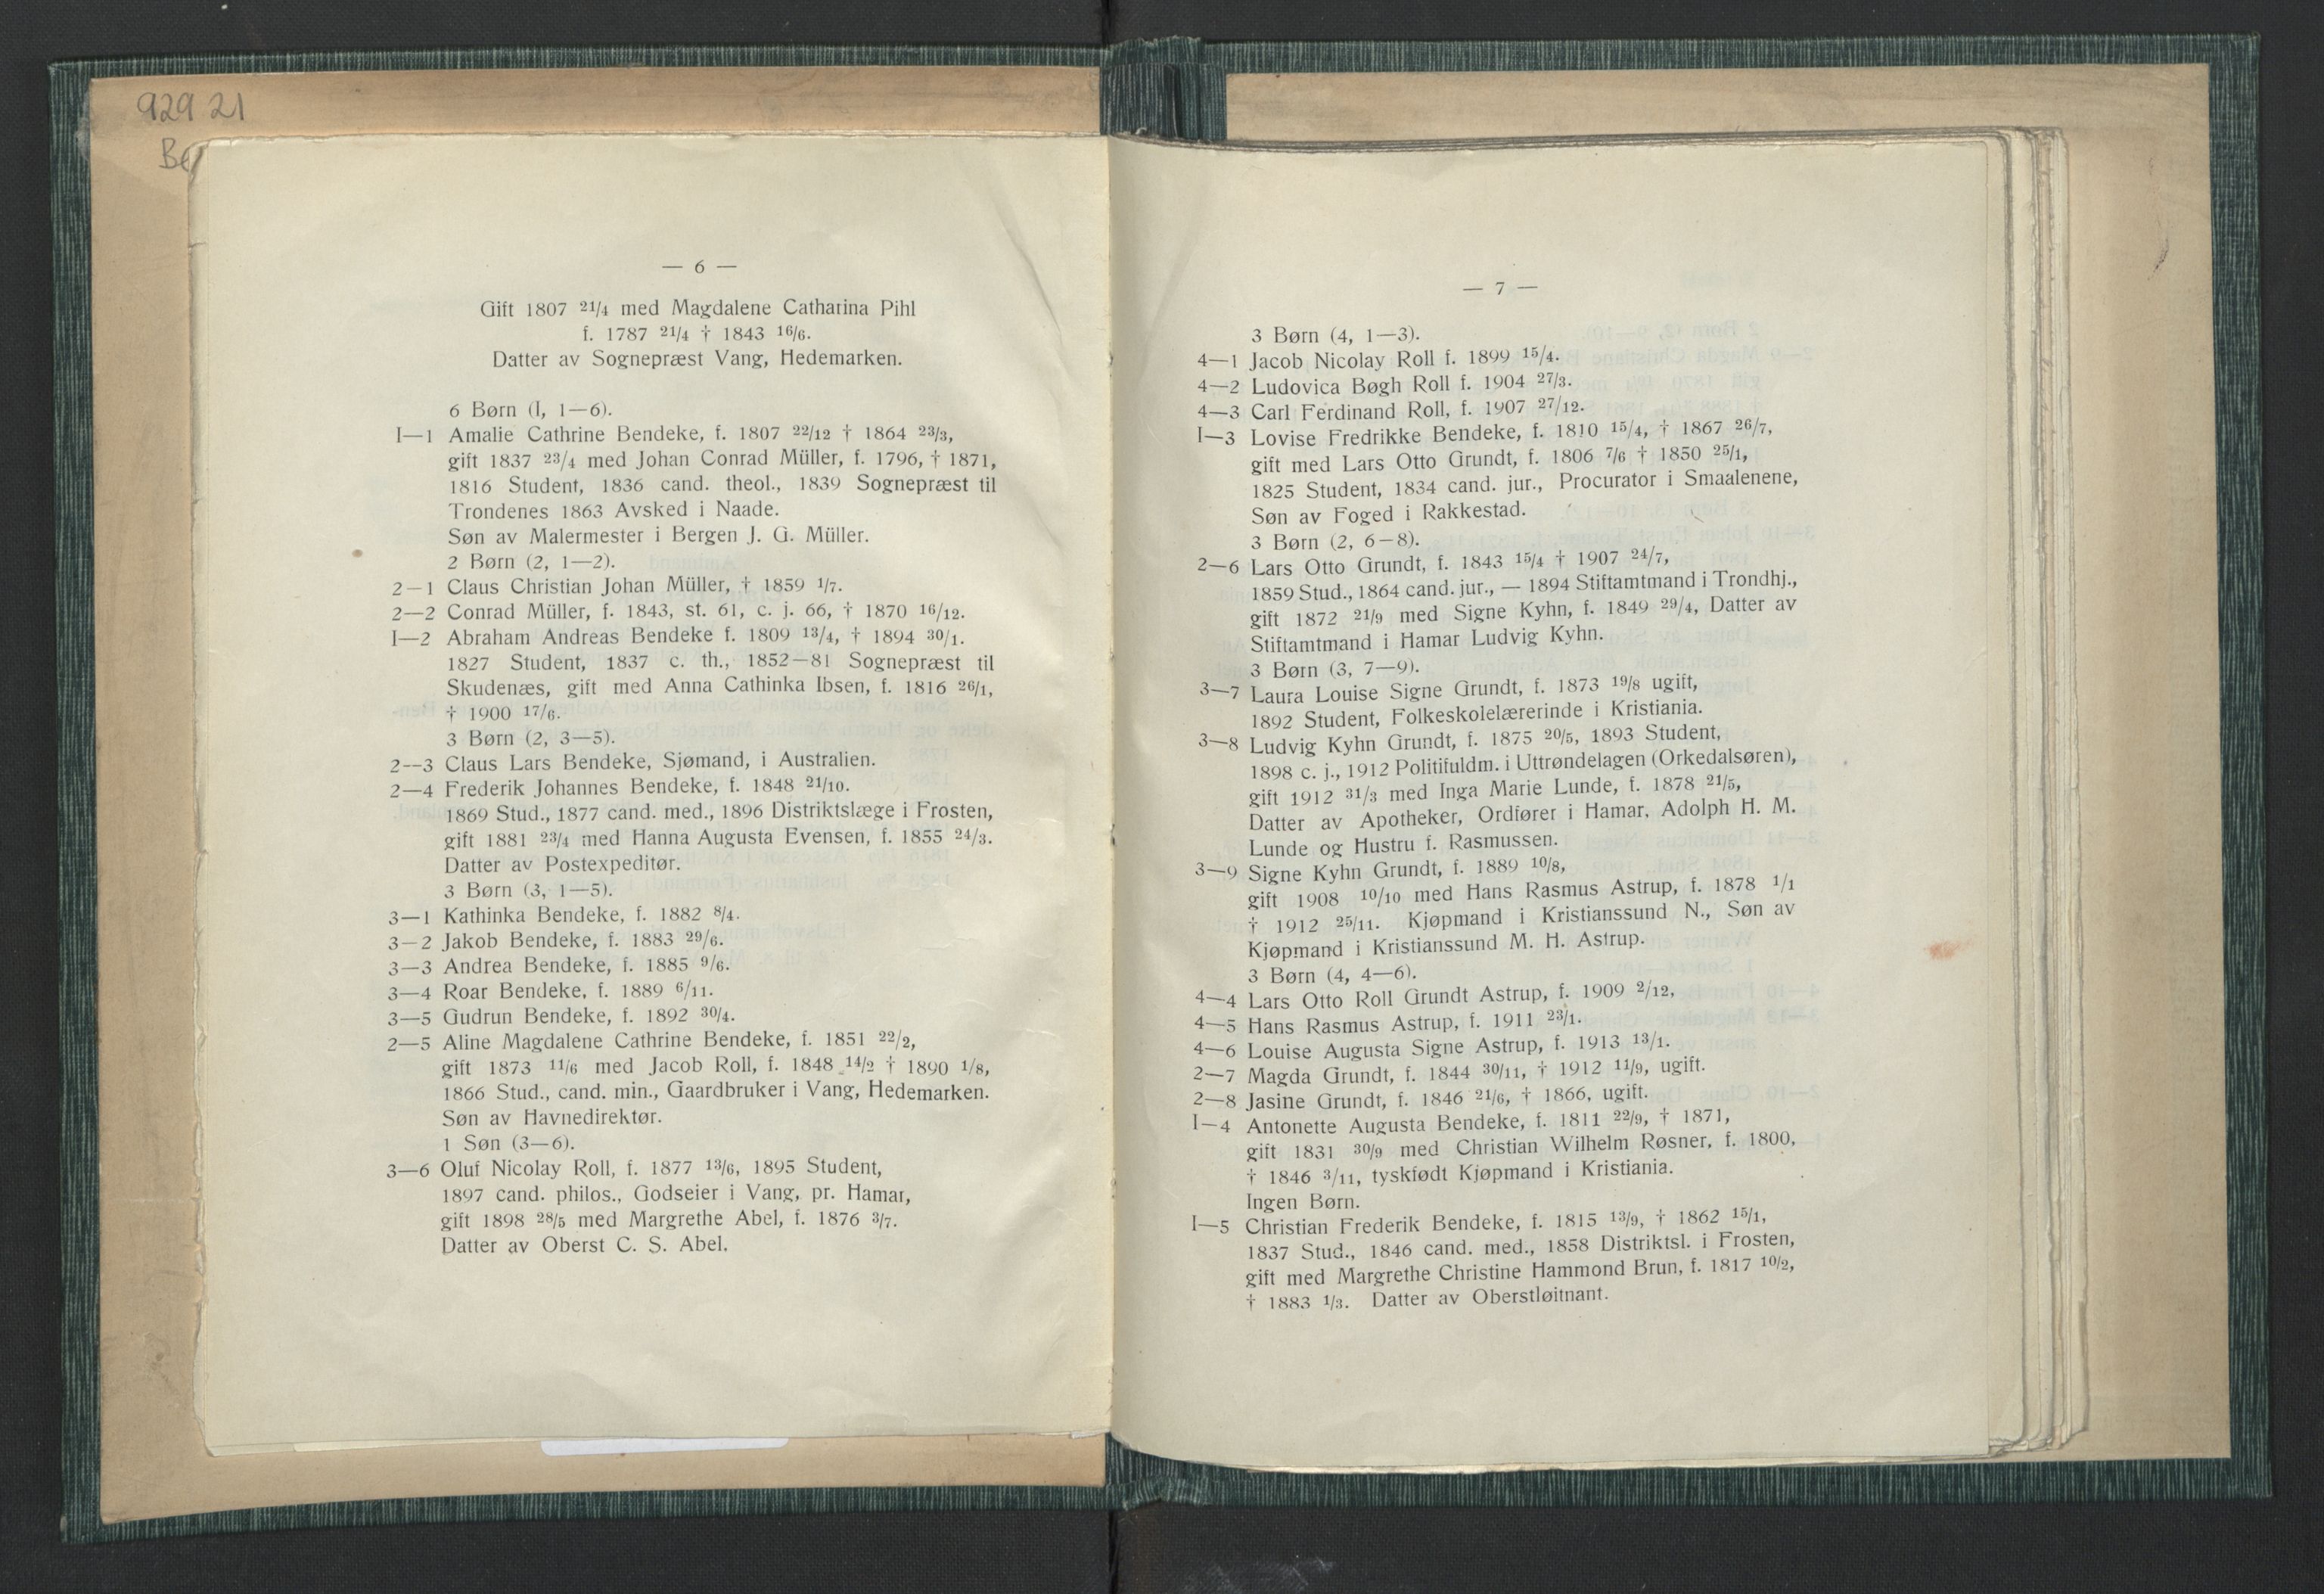 929 21
— 6 —
Gift 1807 21/4 med Magdalene Catharina Pihl
f. 1787 21/4 † 1843 16/6.
Datter av Sognepræst Vang, Hedemarken.
6 Børn (I, 1—6).
I—1 Amalie Cathrine Bendeke, f. 1807 22/12 † 1864 23/3,
gift 1837 23/4 med Johan Conrad Müller, f. 1796, † 1871,
1816 Student, 1836 cand. theol., 1839 Sognepræst til
Trondenes 1863 Avsked i Naade.
Søn av Malermester i Bergen J. G. Müller.
2 Børn (2, 1—2).
2—1 Claus Christian Johan Müller, † 1859 1/7.
2—2 Conrad Müller, f. 1843, st. 61, c. j. 66, † 1870 16/12.
I—2 Abraham Andreas Bendeke f. 1809 13/4, † 1894 30/1.
1827 Student, 1837 c. th., 1852—81 Sognepræst til
Skudenæs, gift med Anna Cathinka Ibsen, f. 1816 26/1,
† 1900 17/6.
3 Børn (2, 3—5).
2--3 Claus Lars Bendeke, Sjømand, i Australien.
2—4 Frederik Johannes Bendeke, f. 1848 21/10.
1869 Stud., 1877 cand. med., 1896 Distriktslæge i Frosten,
gift 1881 23/4 med Hanna Augusta Evensen, f. 1855 24/3.
Datter av Postexpeditør.
3 Børn (3, 1—5).
3—1 Kathinka Bendeke, f. 1882 8/4.
3—2 Jakob Bendeke, f. 1883 29/6.
3—3 Andrea Bendeke, f. 1885 9/6.
3—4 Roar Bendeke, f. 1889 6/11.
3—5 Gudrun Bendeke, f. 1892 30/4.
2—5 Aline Magdalene Cathrine Bendeke, f. 1851 22/2,
gift 1873 11/6 med Jacob Roll, f. 1848 14/2 † 1890 1/8,
1866 Stud., cand. min., Gaardbruker i Vang, Hedemarken.
Søn av Havnedirektør.
1 Søn (3—6).
3—6 Oluf Nicolay Roll, f. 1877 13/6, 1895 Student,
1897 cand. philos., Godseier i Vang, pr. Hamar,
gift 1898 28/5 med Margrethe Abel, f. 1876 3/7.
Datter av Oberst C. S. Abel.
— 7 —
3 Børn (4, 1—3).
4—1 Jacob Nicolay Roll f. 1899 15/4.
4—2 Ludovica Bøgh Roll f. 1904 27/3.
4—3 Carl Ferdinand Roll, f. 1907 27/12.
I—3 Lovise Fredrikke Bendeke, f. 1810 15/4, † 1867 26/7,
gift med Lars Otto Grundt, f. 1806 7/6 † 1850 25/1,
1825 Student, 1834 cand. jur., Procurator i Smaalenene,
Søn av Foged i Rakkestad.
3 Børn (2, 6—8).
2—6 Lars Otto Grundt, f. 1843 15/4 † 1907 24/7,
1859 Stud., 1864 cand. jur., — 1894 Stiftamtmand i Trondhj.,
gift 1872 21/9 med Signe Kyhn, f. 1849 29/4, Datter av
Stiftamtmand i Hamar Ludvig Kyhn.
3 Børn (3, 7—9).
3—7 Laura Louise Signe Grundt, f. 1873 19/8 ugift,
1892 Student, Folkeskolelærerinde i Kristiania.
3—8 Ludvig Kyhn Grundt, f. 1875 20/5, 1893 Student,
1898 c. j., 1912 Politifuldm. i Uttrøndelagen (Orkedalsøren),
gift 1912 31/3 med Inga Marie Lunde, f. 1878 21/5,
Datter av Apotheker, Ordfører i Hamar, Adolph H. M.
Lunde og Hustru f. Rasmussen.
3—9 Signe Kyhn Grundt, f. 1889 10/8,
gift 1908 10/10 med Hans Rasmus Astrup, f. 1878 1/1
† 1912 25/11. Kjøpmand i Kristianssund N., Søn av
Kjøpmand i Kristianssund M. H. Astrup.
3 Børn (4, 4—6).
4—4 Lars Otto Roll Grundt Astrup, f. 1909 2/12,
4—5 Hans Rasmus Astrup, f. 1911 23/1.
4—6 Louise Augusta Signe Astrup, f. 1913 13/1.
2—7 Magda Grundt, f. 1844 30/11, † 1912 11/9, ugift.
2—8 Jasine Grundt, f. 1846 21/6, † 1866, ugift.
I—4 Antonette Augusta Bendeke, f. 1811 22/9, † 1871,
gift 1831 30/9 med Christian Wilhelm Røsner, f. 1800,
† 1846 3/11, tyskfødt Kjøpmand i Kristiania.
Ingen Børn.
I—5 Christian Frederik Bendeke, f. 1815 13/9, † 1862 15/1,
1837 Stud., 1846 cand. med., 1858 Distriktsl. i Frosten,
gift med Margrethe Christine Hammond Brun, f. 1817 10/2,
† 1883 1/3. Datter av Oberstløitnant.